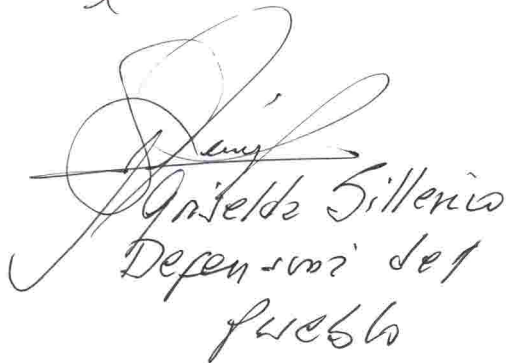 Griselda Sillerico
Defensoría del
Pueblo